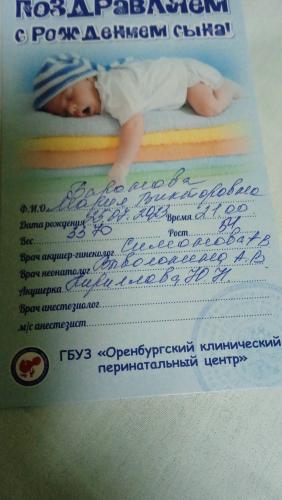 ПОЗДРАВЛЯЕМ
с рождением сына!
Ф.И.О. Мария Викторовна
Дата рождения 25.07.2023 Время 21.00
Вес 3570 Рост 54
Врач акушер-гинеколог Симонова А.В
Врач неонатолог А.В.
Акушерка Кириллова Ю.Н.
Врач анестезиолог
м/с анестезист
ГБУЗ «Оренбургский клинический
перинатальный центр»